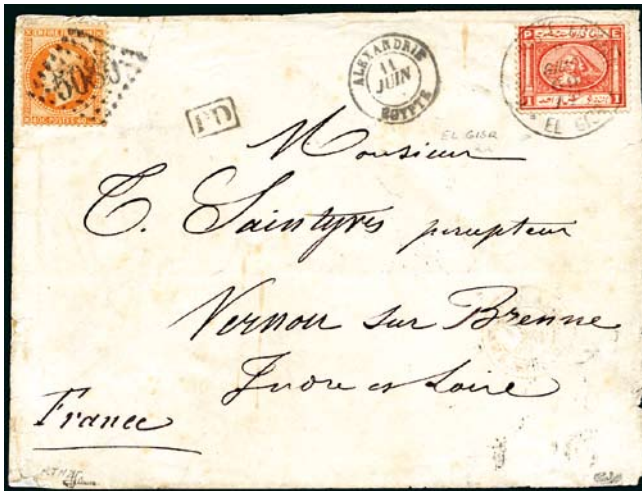 5080
ALEXANDRIE
11
JUIN
EGYPTE
P E
1 1
EL GIS
PD
EL GISR
Monsieur
C. Saintyves percepteur
Vernou sur Brenne
Indre et Loire
France